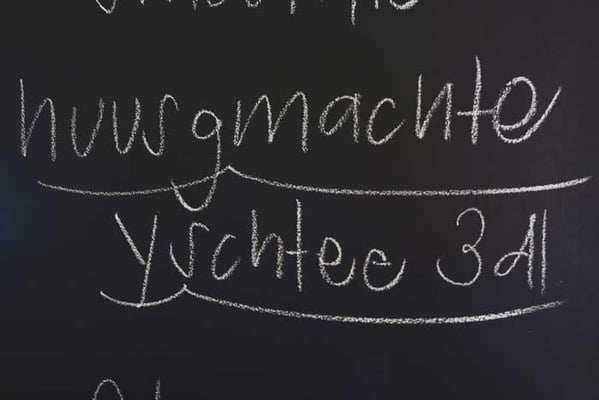 huusgmachte
Yschtee 3dl